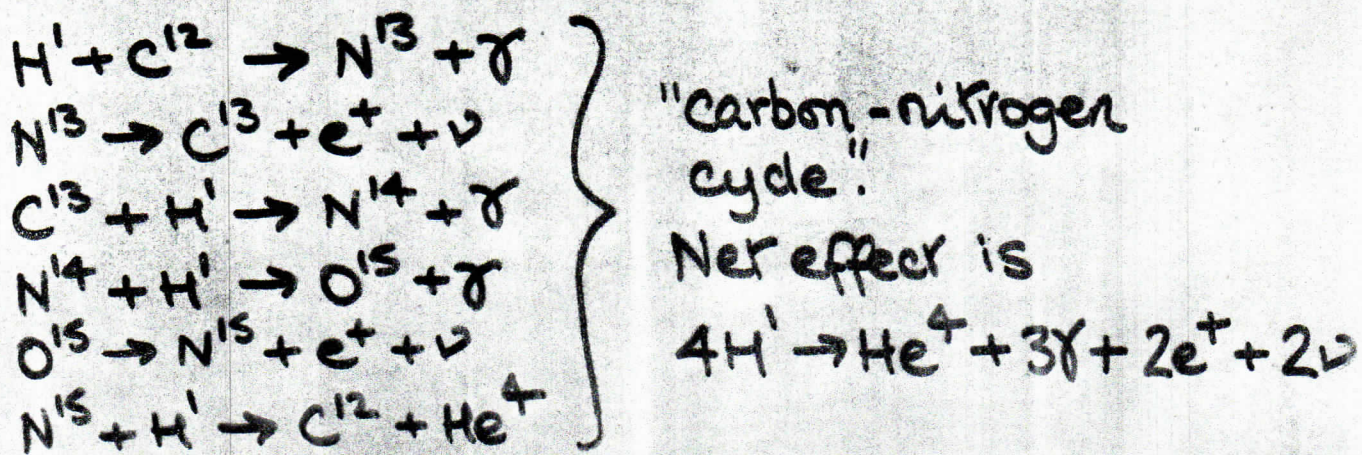 H¹ + C¹² → N¹³ + γ
N¹³ → C¹³ + e⁺ + ν
C¹³ + H¹ → N¹⁴ + γ
N¹⁴ + H¹ → O¹⁵ + γ
O¹⁵ → N¹⁵ + e⁺ + ν
N¹⁵ + H¹ → C¹² + He⁴
"carbon-nitrogen
cycle".
Net effect is
4H¹ → He⁴ + 3γ + 2e⁺ + 2ν